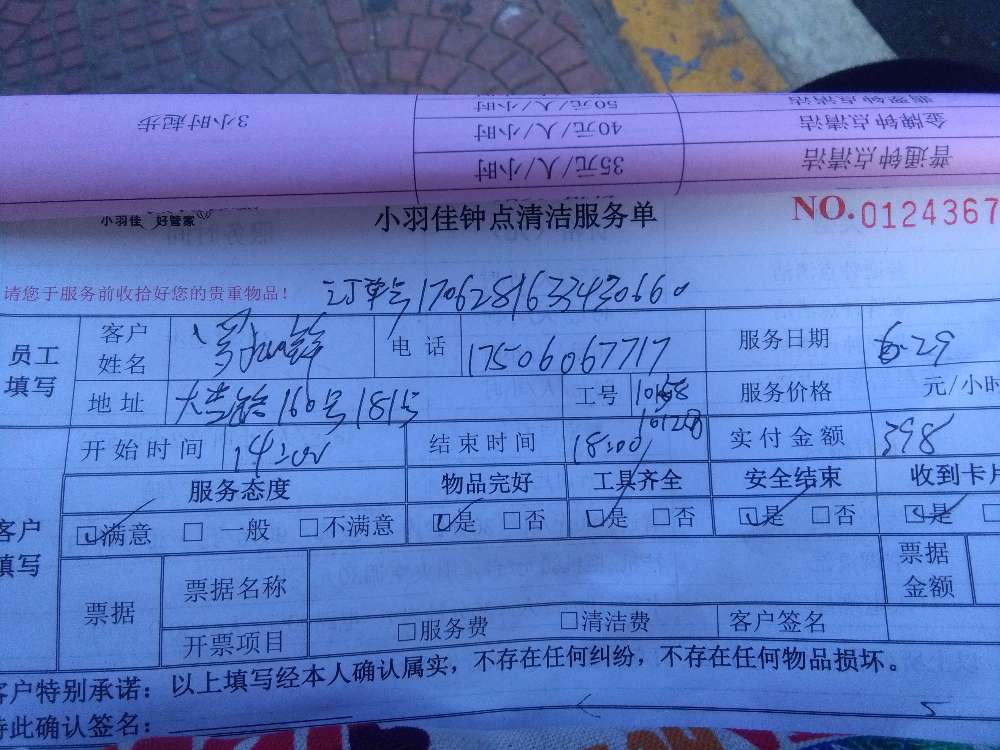 3小时起步
50元/人/小时
40元/人/小时 金牌钟点清洁
35元/人/小时 普通钟点清洁
小羽佳 好管家
小羽佳钟点清洁服务单 NO. 0124367
请您于服务前收拾好您的贵重物品! 订单号170628163343066
员工填写 客户姓名 电话 17506067717 服务日期 6.29
地址 160号1815 工号 服务价格 元/小时
开始时间 14:00 结束时间 18:00 实付金额 398
服务态度 物品完好 工具齐全 安全结束 收到卡片
客户填写 满意 一般 不满意 是 否 是 否 是 否 是
票据 票据名称 票据金额
开票项目 服务费 清洁费 客户签名
客户特别承诺:以上填写经本人确认属实,不存在任何纠纷,不存在任何物品损坏。
特此确认签名: